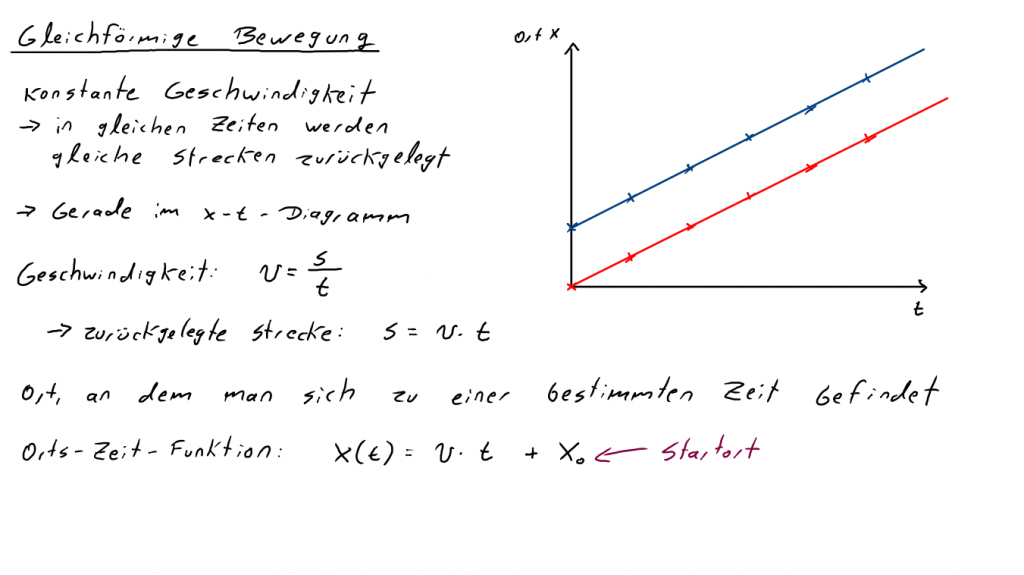 Gleichförmige Bewegung
Ort x
Konstante Geschwindigkeit
→ in gleichen Zeiten werden
gleiche Strecken zurückgelegt
→ Gerade im x-t-Diagramm
Geschwindigkeit: v = s/t
t
→ zurückgelegte Strecke: s = v · t
Ort, an dem man sich zu einer bestimmten Zeit befindet
Orts-Zeit-Funktion: x(t) = v · t + x₀ ← Startort